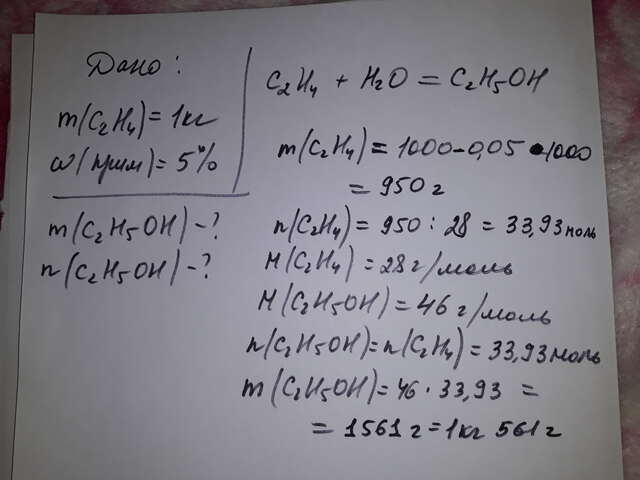 Дано:
m(C₂H₄) = 1кг
ω(прим) = 5%
m(C₂H₅OH) - ?
n(C₂H₅OH) - ?
C₂H₄ + H₂O = C₂H₅OH
m(C₂H₄) = 1000 - 0,05 • 1000
= 950 г
n(C₂H₄) = 950 : 28 = 33,93 моль
M(C₂H₄) = 28 г/моль
M(C₂H₅OH) = 46 г/моль
n(C₂H₅OH) = n(C₂H₄) = 33,93 моль
m(C₂H₅OH) = 46 · 33,93 =
= 1561 г = 1кг 561 г